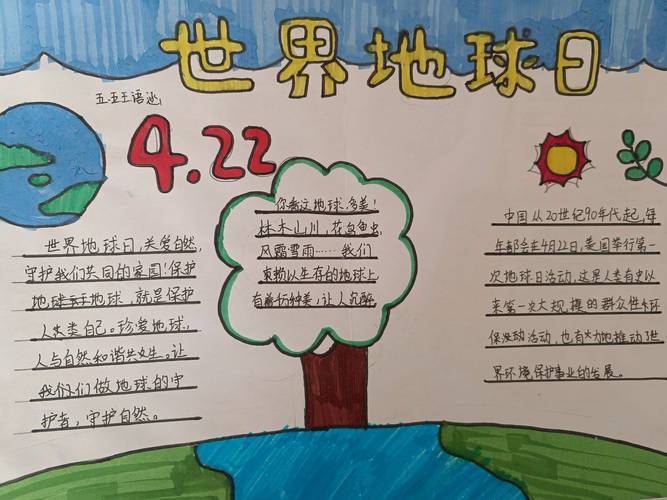 世界地球日
五.五王语涵
4.22
世界地球日,关爱自然,
守护我们共同的家园!保护
地球,就是保护
人类自己。珍爱地球,
人与自然和谐共生。让
我们做地球的守
护者,守护自然。
你看这地球,多美!
林木山川,花鸟鱼虫,
风霜雪雨……我们
赖以生存的地球上,
有万种美,让人沉醉
中国从20世纪90年代起,每
年都会在4月22日,美国举行第一
次地球日活动,这是人类有史以
来第一次大规模的群众性环
保活动,也有力地推动了世
界环境保护事业的发展。